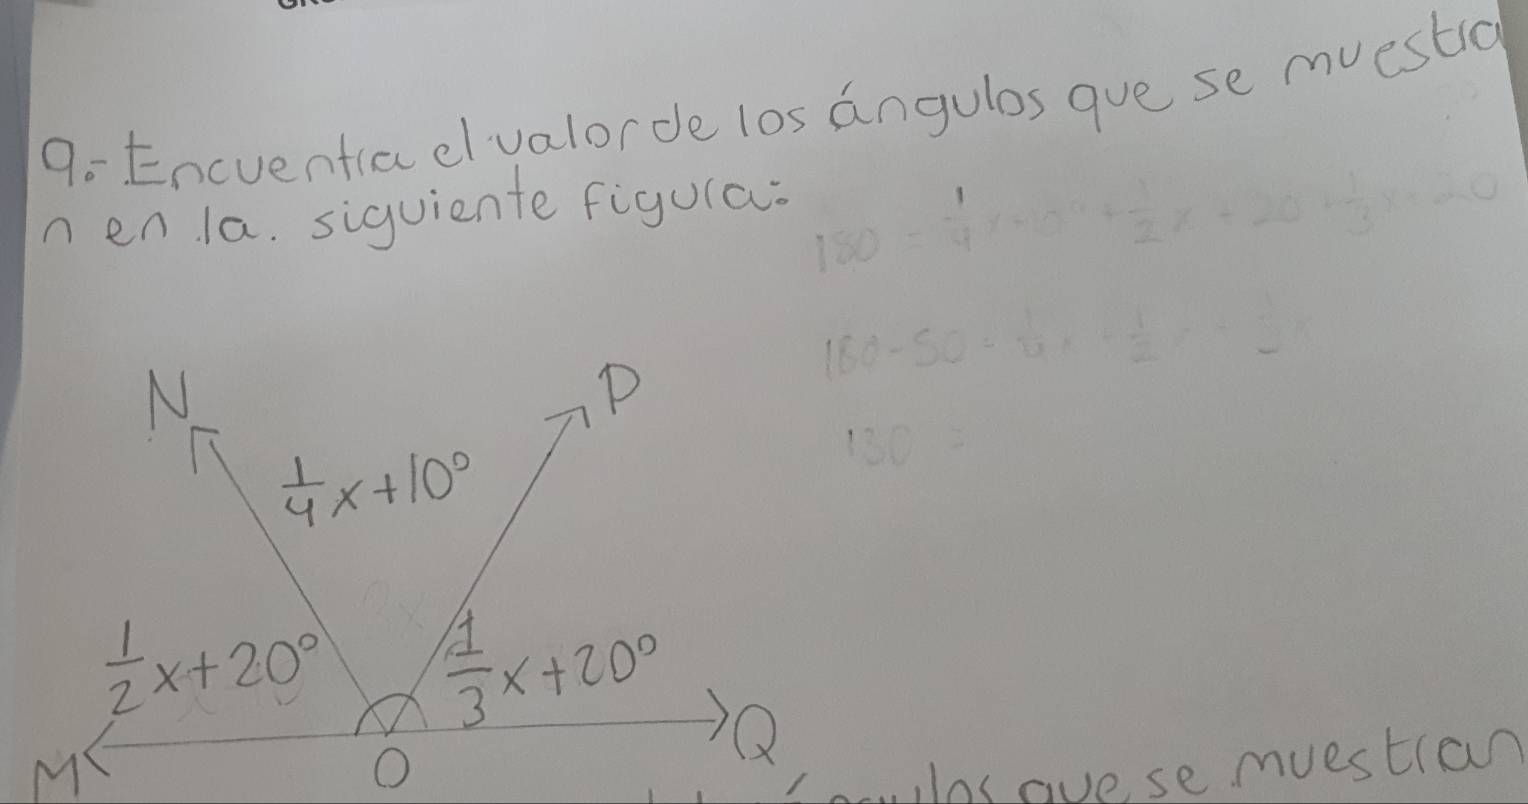 9.- Encuentra el valor de los ángulos que se muestra
n en la. siguiente figura:
180 = 1/4 x + 10° + 1/2 x + 20 + 1/3 x + 20
180 - 50 = 1/4 x + 1/2 x + 1/3 x
130 =
N
P
1/4 x + 10°
1/2 x + 20°
1/3 x + 20°
M
O
Q
que se muestran